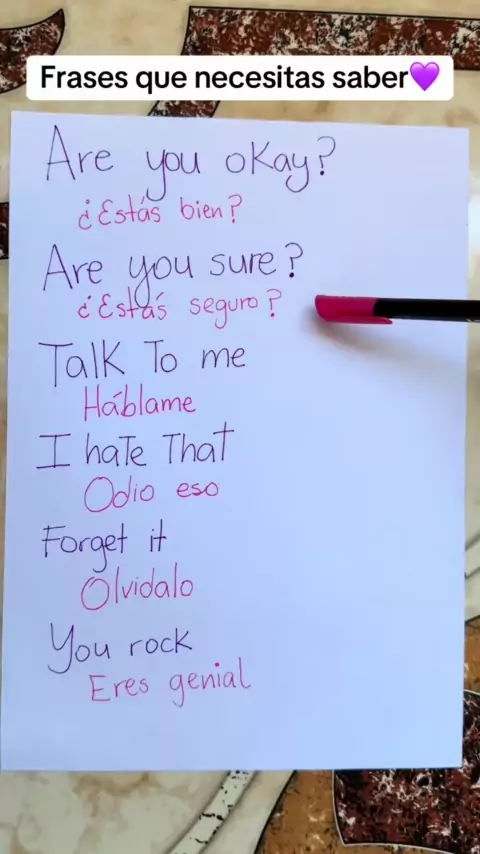 Frases que necesitas saber💜
Are you okay?
¿Estás bien?
Are you sure?
¿Estás seguro?
Talk To me
Háblame
I hate That
Odio eso
Forget it
Olvidalo
You rock
Eres genial